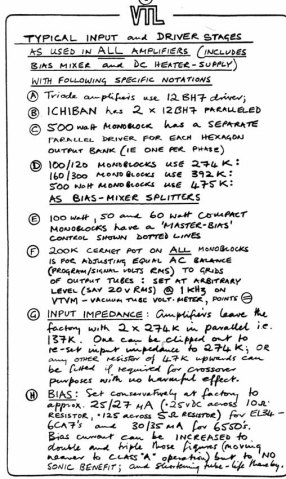 VTL
TYPICAL INPUT and DRIVER STAGES
AS USED IN ALL AMPLIFIERS (INCLUDES
BIAS MIXER and DC HEATER-SUPPLY)
WITH FOLLOWING SPECIFIC NOTATIONS
(A) Triode amplifiers use 12BH7 driver;
(B) ICHIBAN has 2 x 12BH7 PARALLELED
(C) 500 watt MONOBLOCK has a SEPARATE
PARALLEL DRIVER FOR EACH HEXAGON
OUTPUT BANK (IE ONE PER PHASE)
(D) 100/120 MONOBLOCKS USE 274K:
160/300 MONOBLOCKS USE 392K:
500 WATT MONOBLOCKS USE 475K:
AS BIAS-MIXER SPLITTERS
(E) 100 watt, 50 and 60 WATT COMPACT
MONOBLOCKS have a 'MASTER-BIAS'
CONTROL SHOWN DOTTED LINES
(F) 200K CERMET POT ON ALL MONOBLOCKS
IS FOR ADJUSTING EQUAL AC BALANCE
(PROGRAM/SIGNAL VOLTS RMS) TO GRIDS
OF OUTPUT TUBES: SET AT ARBITRARY
LEVEL (SAY 20V RMS) @ 1KHz ON
VTVM - VACUUM TUBE VOLT-METER, POINTS
(G) INPUT IMPEDANCE: Amplifiers leave the
factory with 2 x 274K in parallel i.e.
137K. One can be clipped out to
re-set input impedance to 274K; OR
any other resistor of 47K upwards can
be fitted if required for crossover
purposes with no harmful effect.
(H) BIAS: Set conservatively at factory to
approx. 25/27 MA (.25VDC across 10Ω
RESISTOR, .125 across 5Ω RESISTOR) for EL34-
6CA7's and 30/35 MA for 6550's.
Bias current can be INCREASED to
double and triple those figures (moving
nearer to CLASS "A" operation) but to NO
SONIC BENEFIT; and shortening tube-life thereby.